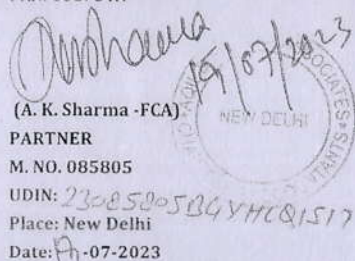 19/07/2023
(A. K. Sharma -FCA)
PARTNER
M. NO. 085805
NEW DELHI
UDIN: 23085805BGYHCQ1517
Place: New Delhi
Date: 19-07-2023